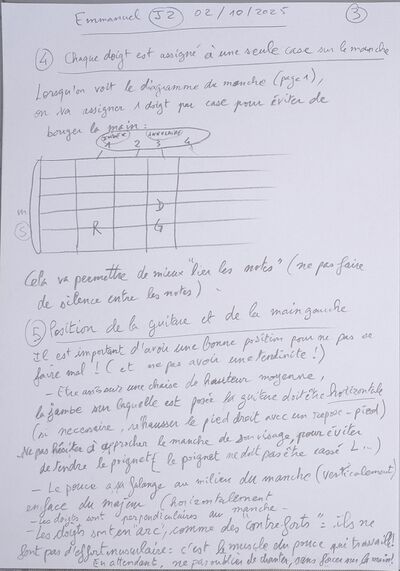 Emmanuel J2 02/10/2025 3
4 Chaque doigt est assigné à une seule case sur le manche
Lorsqu'on voit le diagramme du manche (page 1),
on va assigner 1 doigt par case pour éviter de
bouger la main :
INDEX ANNULAIRE
1 2 3 4
D
m
S R G
Cela va permettre de mieux "lier les notes" (ne pas faire
de silence entre les notes).
5 Position de la guitare et de la main gauche
Il est important d'avoir une bonne position pour ne pas se
faire mal ! (et ne pas avoir une tendinite !)
- Etre assis sur une chaise de hauteur moyenne,
la jambe sur laquelle est posée la guitare doit être horizontale
(si necessaire, réhausser le pied droit avec un repose-pied)
- Ne pas hésiter à approcher le manche de son visage, pour éviter
de tendre le poignet (le poignet ne doit pas être cassé L...)
- Le pouce a sa phalange au milieu du manche (verticalement)
en face du majeur (horizontalement
- Les doigts sont perpendiculaires au manche -
- Les doigts sont en "arc", comme des "contreforts" = ils ne
font pas d'effort musculaire : c'est le muscle du pouce qui travaille !
En attendant, ne pas oublier de chanter, sans faire sur le manche !